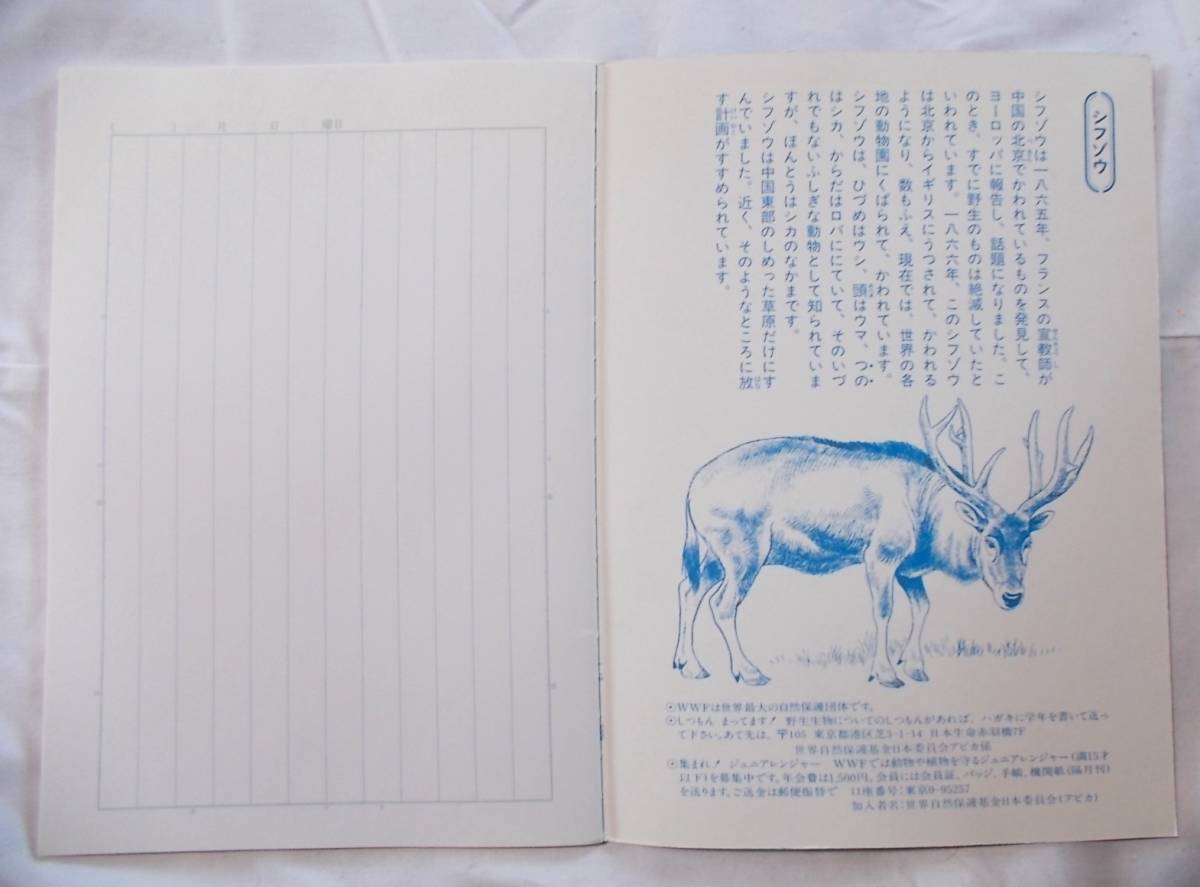 月 日 曜日
シフゾウ
シフゾウは一八六五年、フランスの宣教師が
中国の北京でかわれているものを発見して、
ヨーロッパに報告し、話題になりました。こ
のとき、すでに野生のものは絶滅していたと
いわれています。一八六六年、このシフゾウ
は北京からイギリスにうつされて、かわれる
ようになり、数もふえ、現在では、世界の各
地の動物園にくばられて、かわれています。
シフゾウは、ひづめはウシ、頭はウマ、つの
はシカ、からだはロバににていて、そのいづ
れでもないふしぎな動物として知られていま
すが、ほんとうはシカのなかまです。
シフゾウは中国東部のしめった草原だけにす
んでいました。近く、そのようなところに放
す計画がすすめられています。
⊙WWFは世界最大の自然保護団体です。
⊙しつもん まってます! 野生生物についてのしつもんがあれば、ハガキに学年を書いて送っ
て下さい。あて先は、〒105 東京都港区芝3-1-14 日本生命赤羽橋7F
世界自然保護基金日本委員会アピカ係
⊙集まれ! ジュニアレンジャー WWFでは動物や植物を守るジュニアレンジャー(満15才
以下)を募集中です。年会費は1,500円。会員には会員証、バッジ、手帳、機関紙(隔月刊)
を送ります。ご送金は郵便振替で 口座番号:東京9-95257
加入者名:世界自然保護基金日本委員会(アピカ)